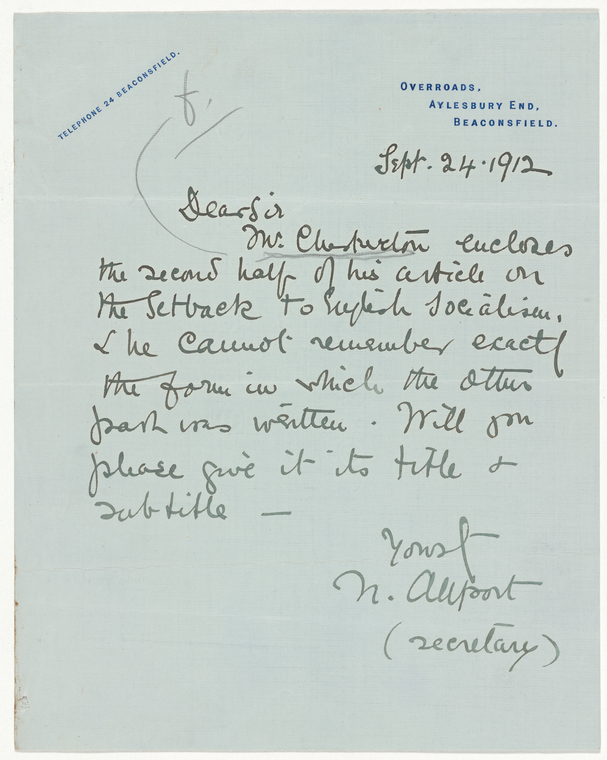 TELEPHONE 24 BEACONSFIELD.
f.
OVERROADS,
AYLESBURY END,
BEACONSFIELD.
Sept. 24. 1912
Dear Sir
Mr. Chesterton encloses
the second half of his article on
the Setback to English Socialism.
& he cannot remember exactly
the form in which the other
part was written. Will you
please give it its title &
subtitle —
Yours f
N. Allport
(secretary)